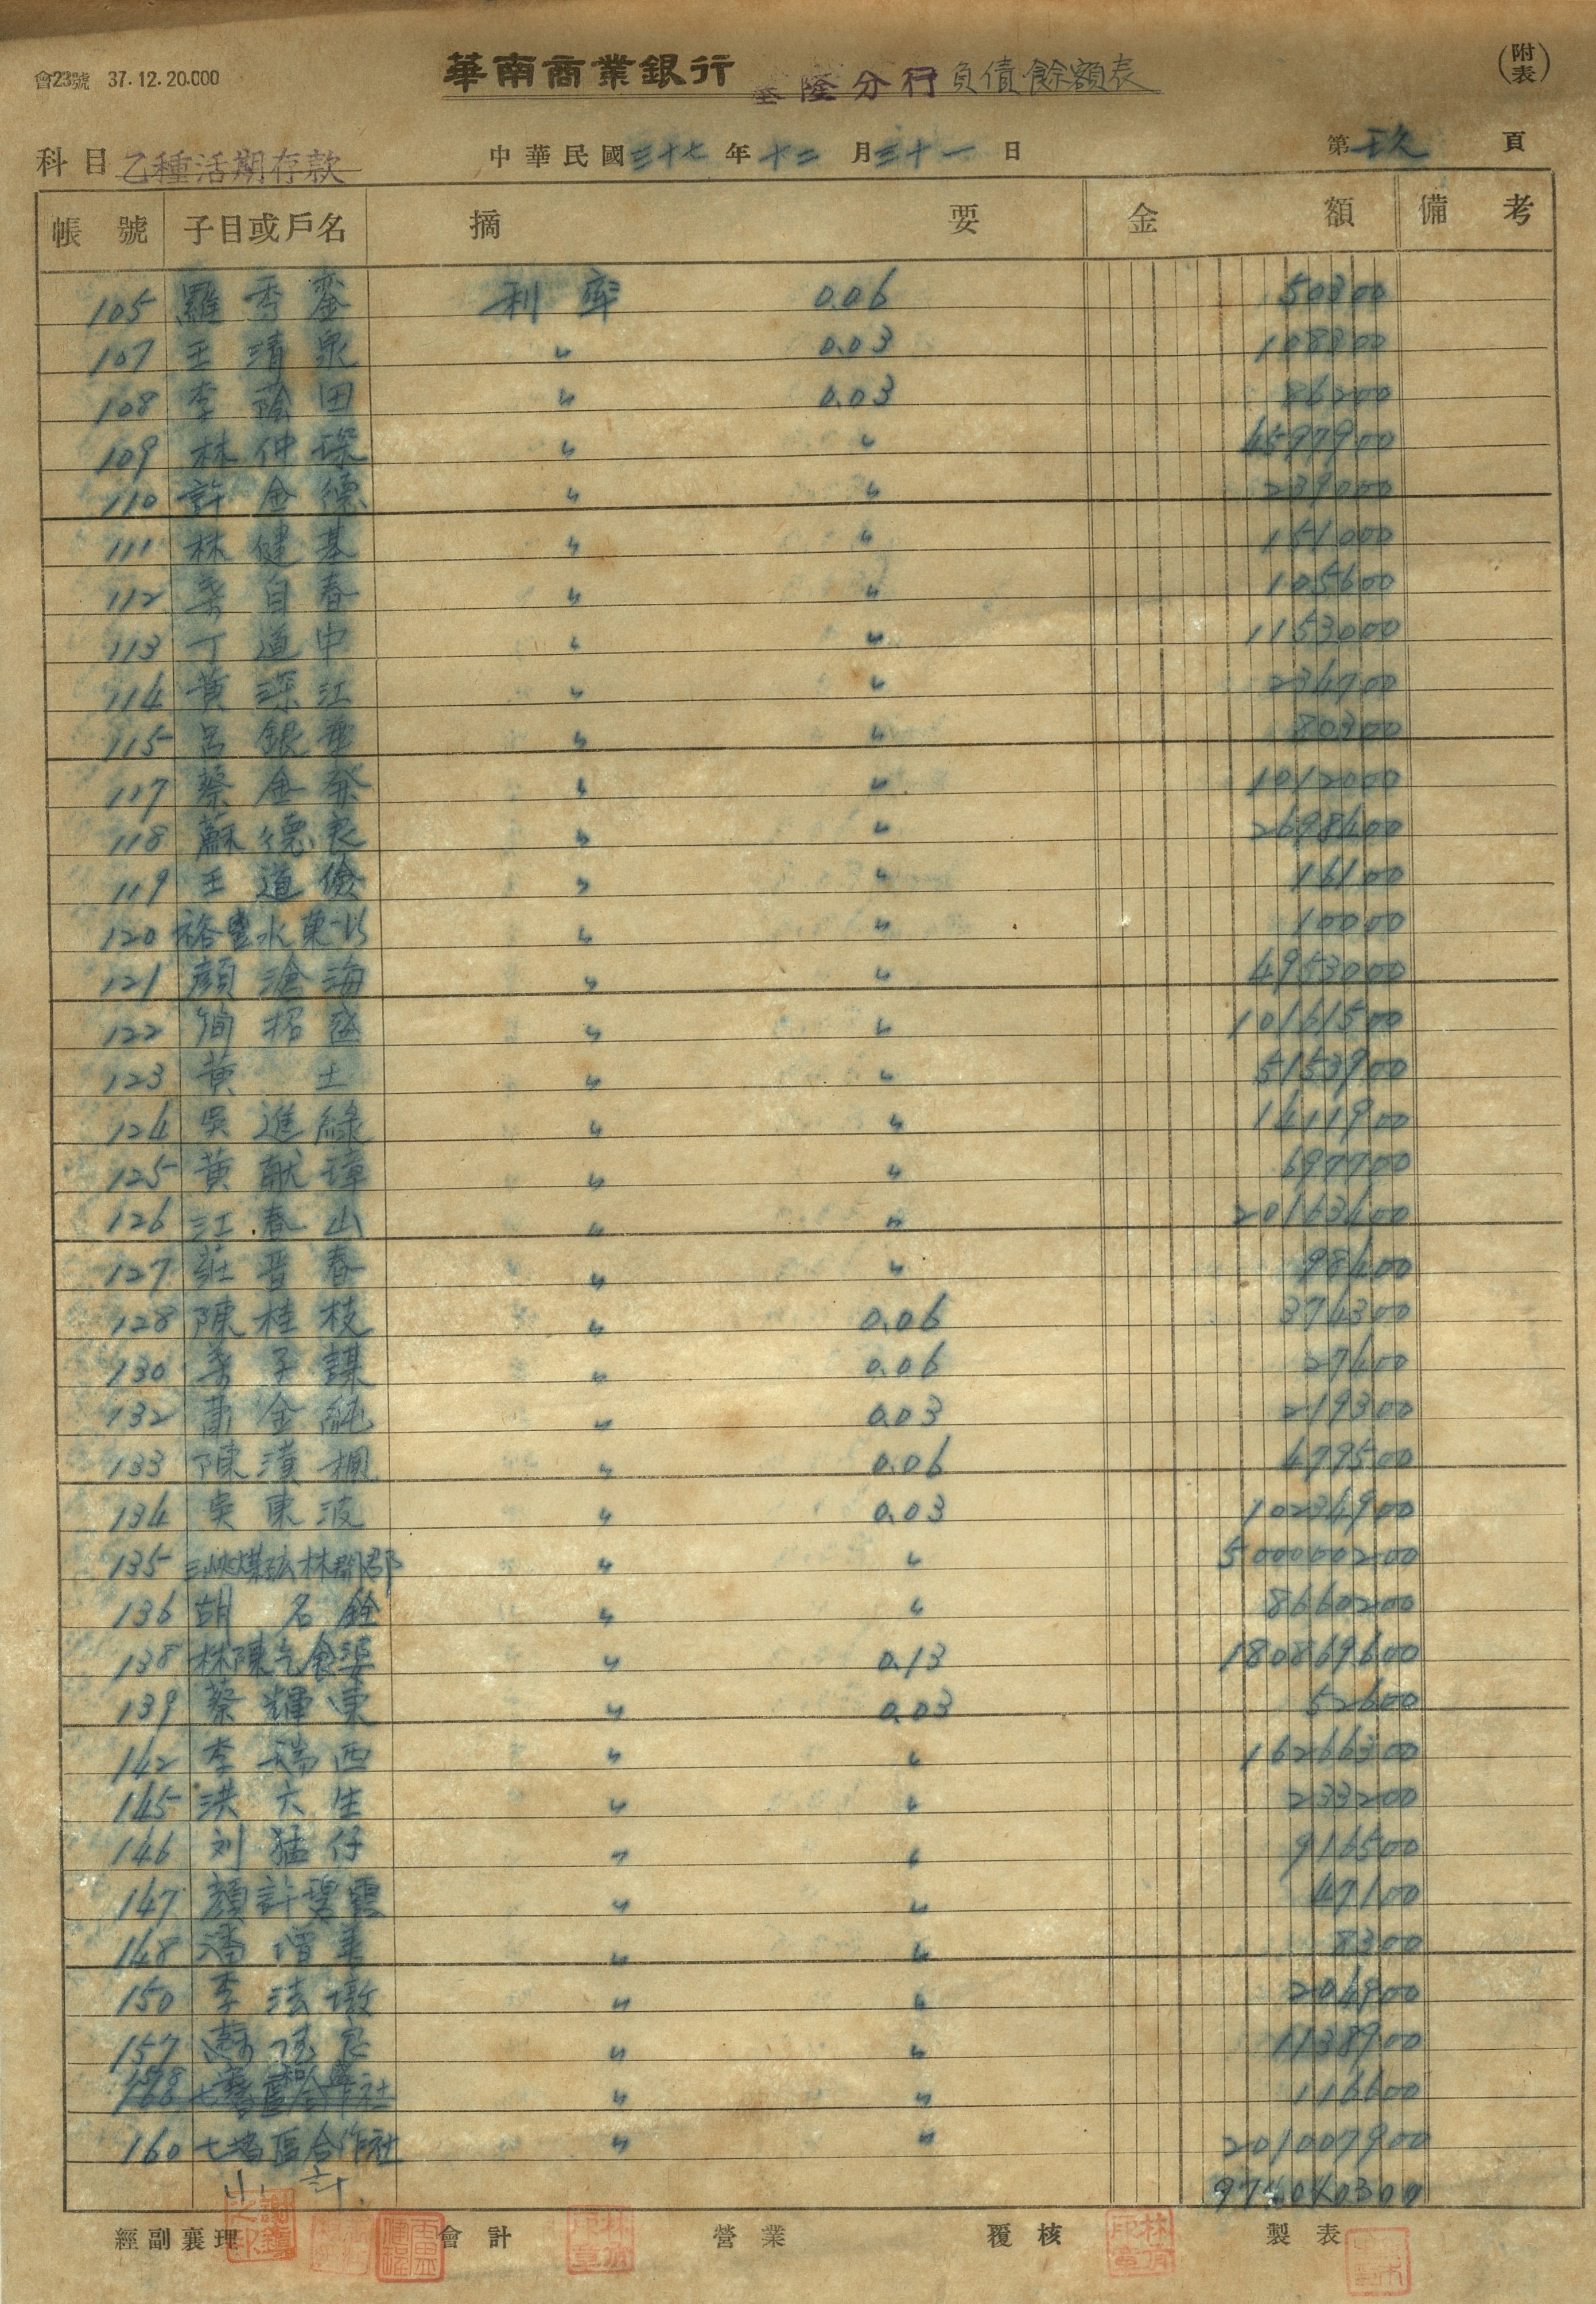 會23號 37.12.20.000
華南商業銀行 基隆分行負債餘額表
(附表)
科目 乙種活期存款 中華民國三十七年十二月三十一日 第 頁
帳號 子目或戶名 摘要 金額 備考
105 羅秀鑾 利率 0.06 50300
107 王清泉 〃 0.03 108300
108 李蔭田 〃 0.03 86200
109 林仲琛 〃 〃 4597900
110 許金德 〃 〃 239000
111 林健基 〃 〃 151000
112 自春 〃 〃 105600
113 丁道中 〃 〃 1153000
114 黃深江 〃 〃 234700
115 呂銀華 〃 〃 80300
117 蔡金發 〃 〃 1012000
118 蘇德良 〃 〃 2698400
119 王道儉 〃 〃 16100
120 裕豐水菓行 〃 〃 10000
121 顏滄海 〃 〃 4953000
122 簡招盛 〃 〃 10161500
123 黃土 〃 〃 5153900
124 吳進綠 〃 〃 1411900
125 黃献璋 〃 〃 697700
126 江春山 〃 〃 20163400
127 莊晋春 〃 〃 98400
128 陳桂枝 〃 0.06 374300
130 子謀 〃 0.06 27400
132 金純 〃 0.03 219300
133 陳漢 〃 0.06 479500
134 吳東波 〃 0.03 10234900
135 三峽煤砿林 〃 〃 500000200
136 胡名銓 〃 〃 8660200
138 林陳乞食婆 〃 0.13 180869600
139 蔡輝東 〃 0.03 52600
142 李瑞西 〃 〃 16266300
145 洪六生 〃 〃 233200
146 刘猛仔 〃 〃 916500
147 顏許碧霞 〃 〃 47100
148 潘增 〃 〃 8300
150 李法墩 〃 〃 204900
157 蘇 良 〃 〃 1138900
〃 〃 116600
160 七堵區合作社 〃 〃 201007900
小計 974040300
經副襄理 會計 營業 覆核 製表